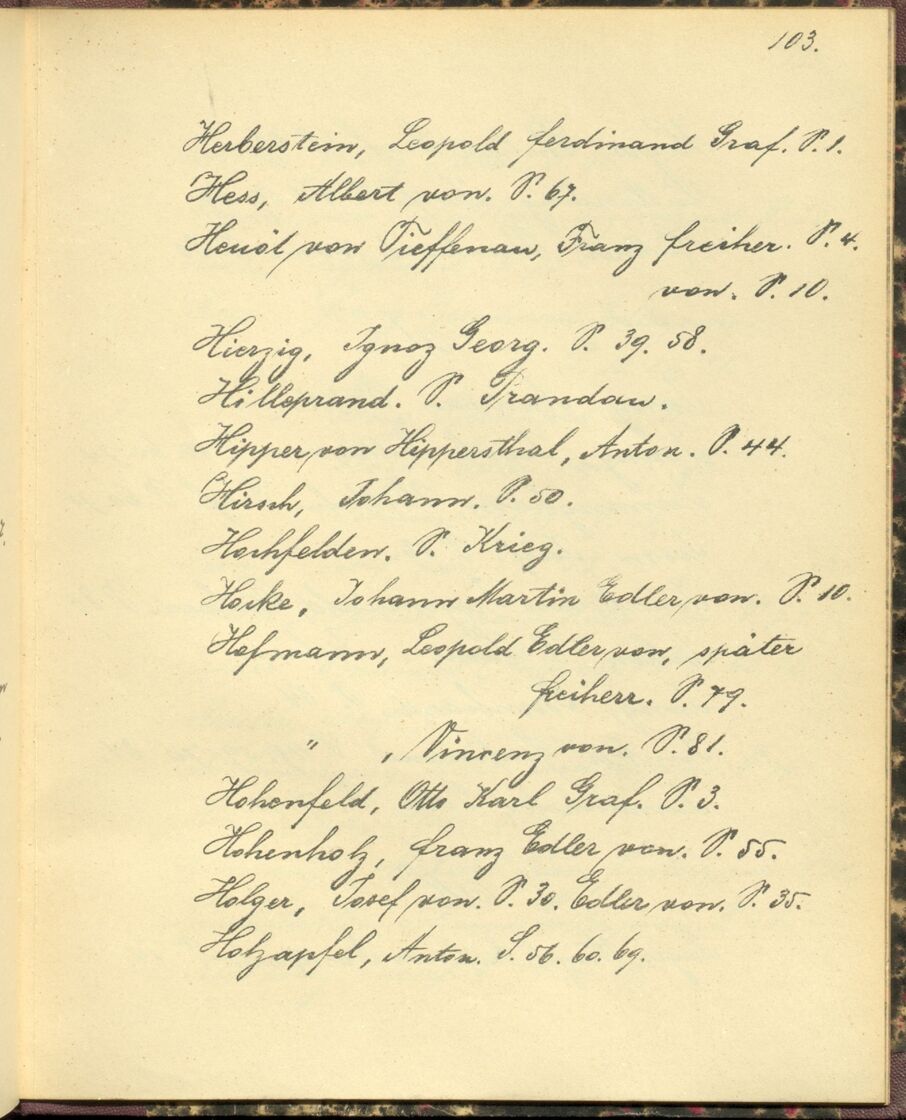 103.
Herberstein, Leopold Ferdinand Graf. S. 1.
Hess, Albert von. S. 67.
Heuöt von Tieffenau, Franz Freiher. S. 4.
von. S. 10.
Hierzig, Ignaz Georg. S. 39. 58.
Hilleprand. S. Prandau.
Hipper von Hippersthal, Anton. S. 44.
Hirsch, Johann. S. 50.
Hochfelden. S. Krieg.
Hocke, Johann Martin Edler von. S. 10.
Hofmann, Leopold Edler von, später
Freiherr. S. 79.
" , Vincenz von. S. 81.
Hohenfeld, Otto Karl Graf. S. 3.
Hohenholz, Franz Edler von. S. 55.
Holger, Josef von. S. 30. Edler von. S. 35.
Holzapfel, Anton. S. 56. 60. 69.